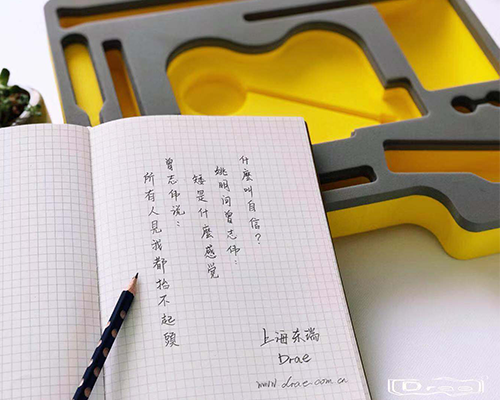 什麼叫自信？
姚明问曾志伟：
矮是什麼感觉
曾志伟说：
所有人見我都抬不起頭
上海东瑞
Drae
www.drae.com.cn
Drae